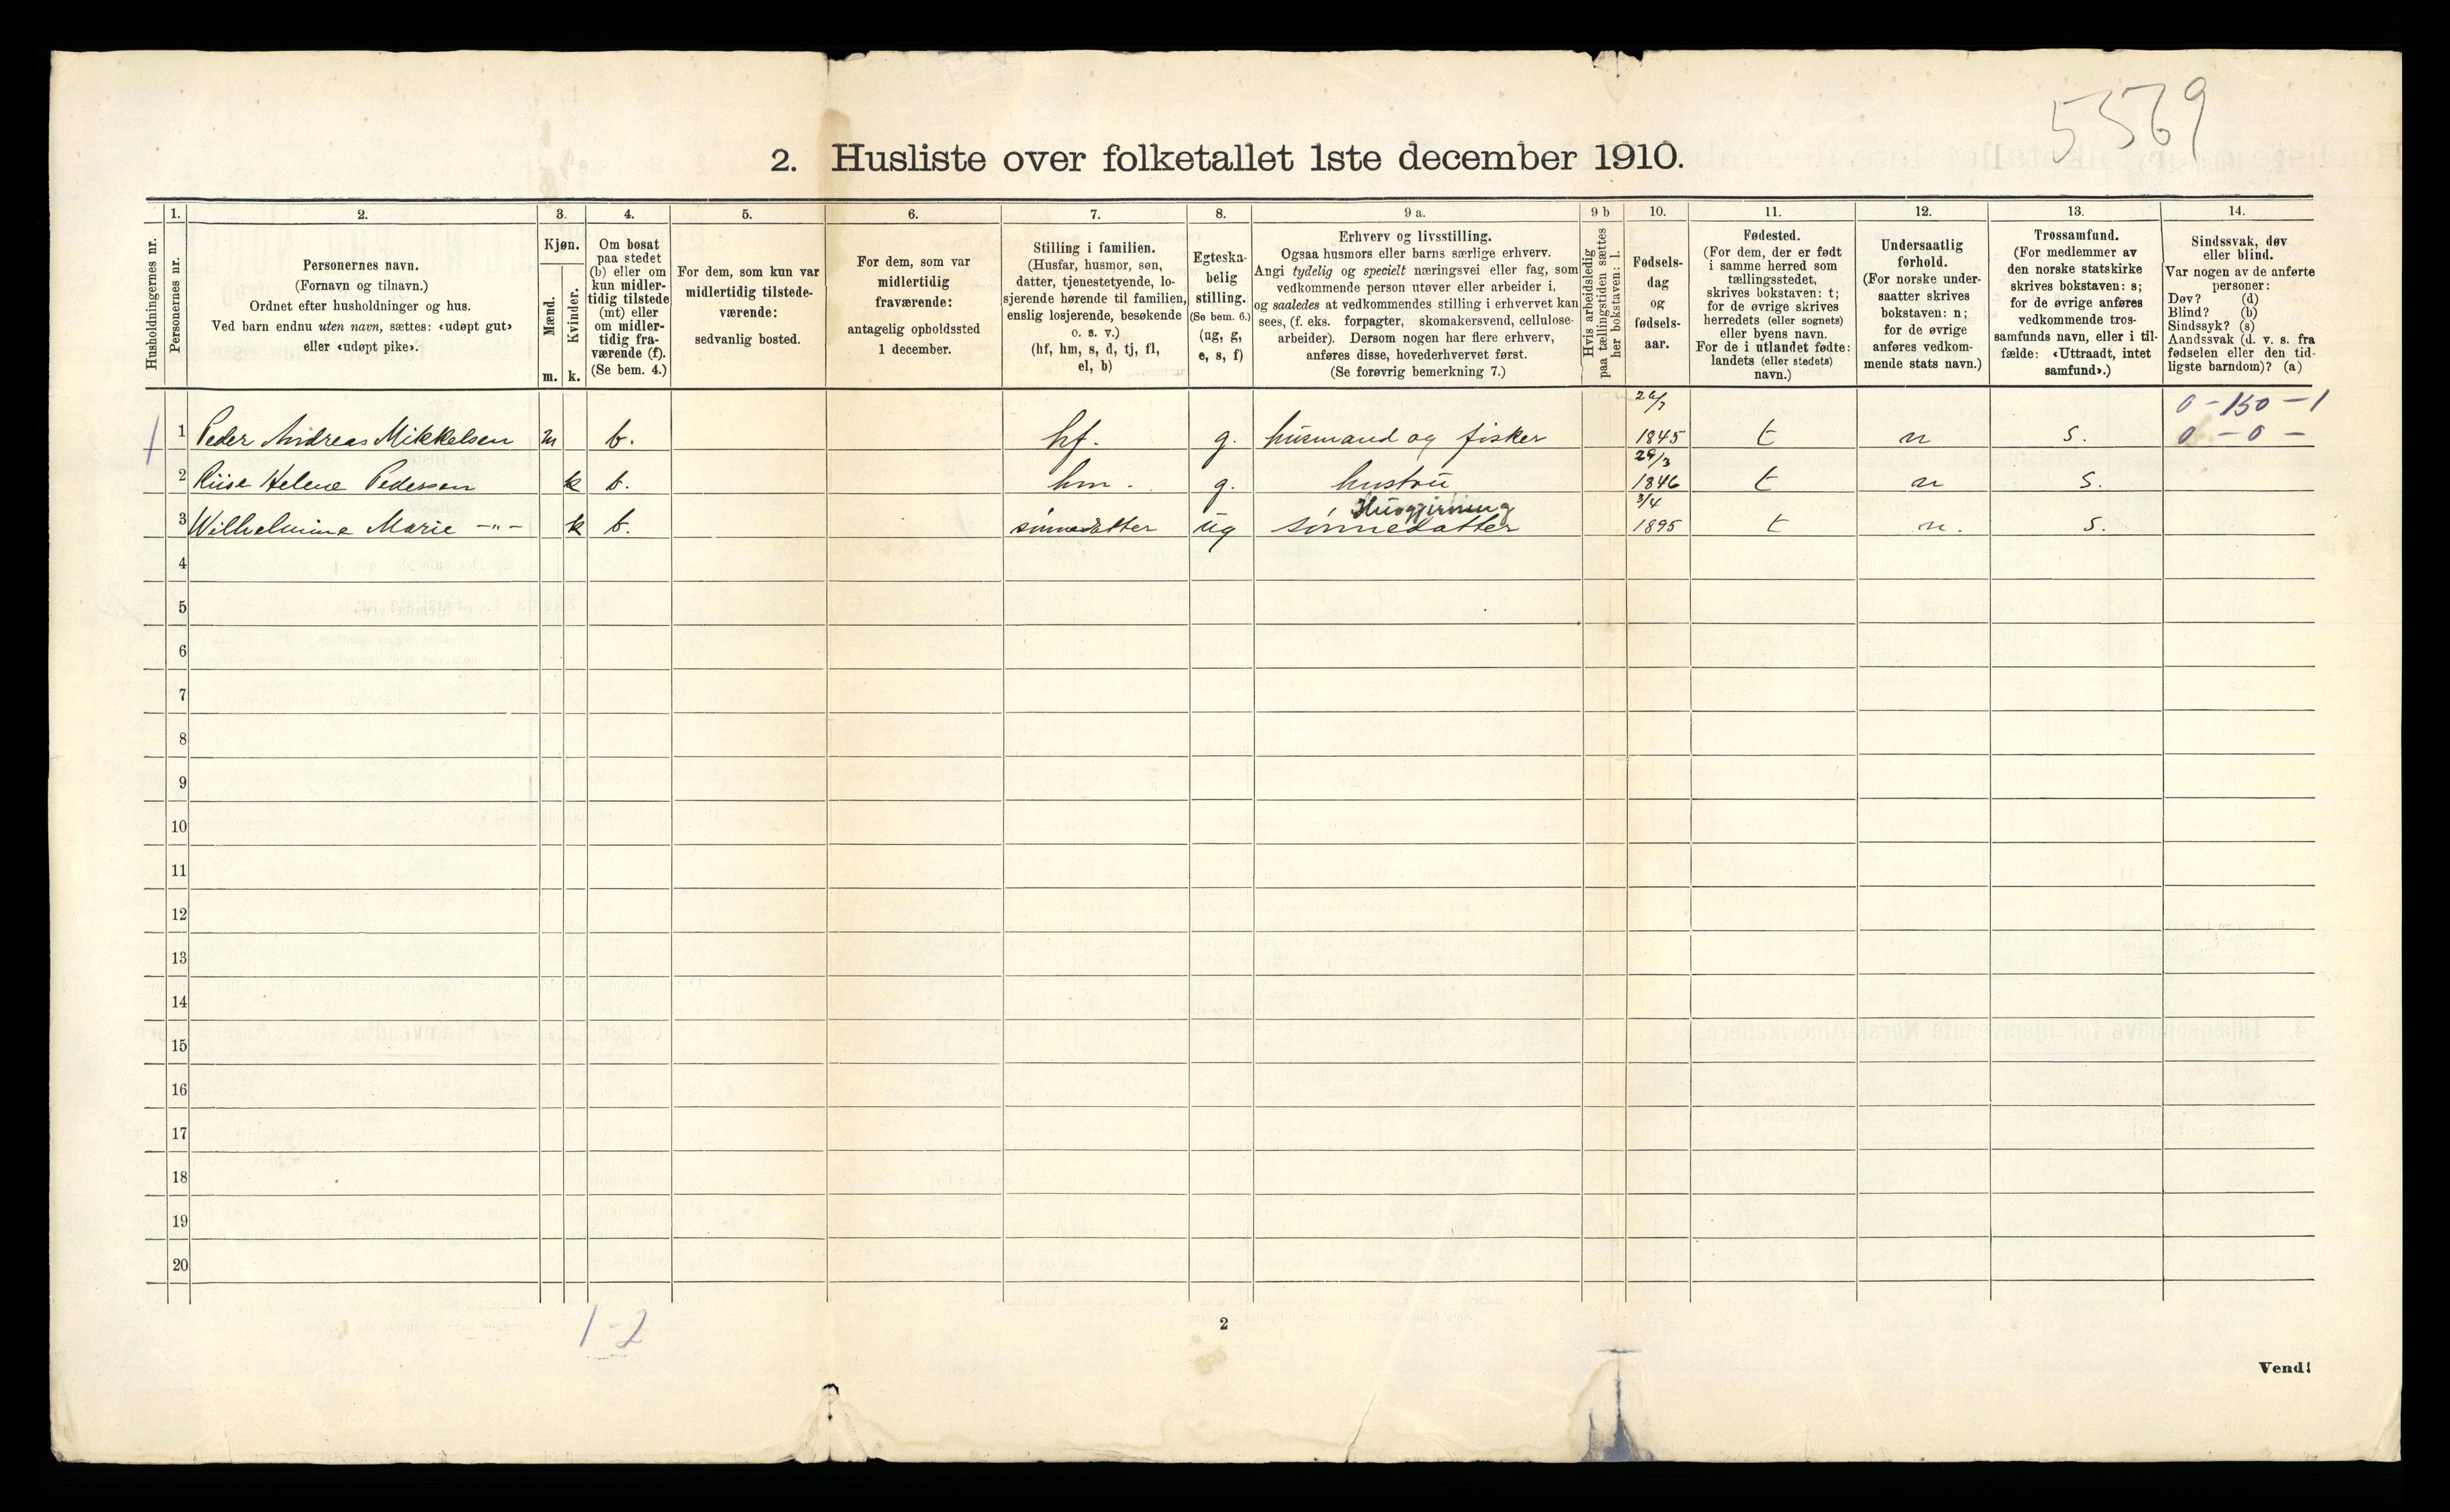 5569
2. Husliste over folketallet 1ste december 1910.
Husholdningernes nr.
1. Personernes nr.
2. Personernes navn.
(Fornavn og tilnavn.)
Ordnet efter husholdninger og hus.
Ved barn endnu uten navn, sættes: «udøpt gut»
eller «udøpt pike».
3. Kjøn.
Mænd. m.
Kvinder. k.
4. Om bosat
paa stedet
(b) eller om
kun midler-
tidig tilstede
(mt) eller
om midler-
tidig fra-
værende (f).
(Se bem. 4.)
5. For dem, som kun var
midlertidig tilstede-
værende:
sedvanlig bosted.
6. For dem, som var
midlertidig
fraværende:
antagelig opholdssted
1 december.
7. Stilling i familien.
(Husfar, husmor, søn,
datter, tjenestetyende, lo-
sjerende hørende til familien,
enslig losjerende, besøkende
o. s. v.)
(hf, hm, s, d, tj, fl,
el, b)
8. Egteska-
belig
stilling.
(Se bem. 6.)
(ug, g,
e, s, f)
9 a. Erhverv og livsstilling.
Ogsaa husmors eller barns særlige erhverv.
Angi tydelig og specielt næringsvei eller fag, som
vedkommende person utøver eller arbeider i,
og saaledes at vedkommendes stilling i erhvervet kan
sees, (f. eks. forpagter, skomakersvend, cellulose-
arbeider). Dersom nogen har flere erhverv,
anføres disse, hovederhvervet først.
(Se forøvrig bemerkning 7.)
9 b Hvis arbeidsledig
paa tællingstiden sættes
her bokstaven: l.
10. Fødsels-
dag
og
fødsels-
aar.
11. Fødested.
(For dem, der er født
i samme herred som
tællingsstedet,
skrives bokstaven: t;
for de øvrige skrives
herredets (eller sognets)
eller byens navn.
For de i utlandet fødte:
landets (eller stedets)
navn.)
12. Undersaatlig
forhold.
(For norske under-
saatter skrives
bokstaven: n;
for de øvrige
anføres vedkom-
mende stats navn.)
13. Trossamfund.
(For medlemmer av
den norske statskirke
skrives bokstaven: s;
for de øvrige anføres
vedkommende tros-
samfunds navn, eller i til-
fælde: «Uttraadt, intet
samfund».)
14. Sindssvak, døv
eller blind.
Var nogen av de anførte
personer:
Døv? (d)
Blind? (b)
Sindssyk? (s)
Aandssvak (d. v. s. fra
fødselen eller den tid-
ligste barndom)? (a)
0 - 150 - 1
0 - 0 -
1 Peder Andreas Mikkelsen m b. hf. g. husmand og fisker 1845 t n s.
2 Helene Pedersen k b. hm. g. hustru 29/3 1846 t n s.
Husgjerning
3 Wilhelmine Marie -"- k b. sønnedatter ug sønnedatter 3/4 1895 t n. s.
4
5
6
7
8
9
10
11
12
13
14
15
16
17
18
19
20
1-2
2
Vend!